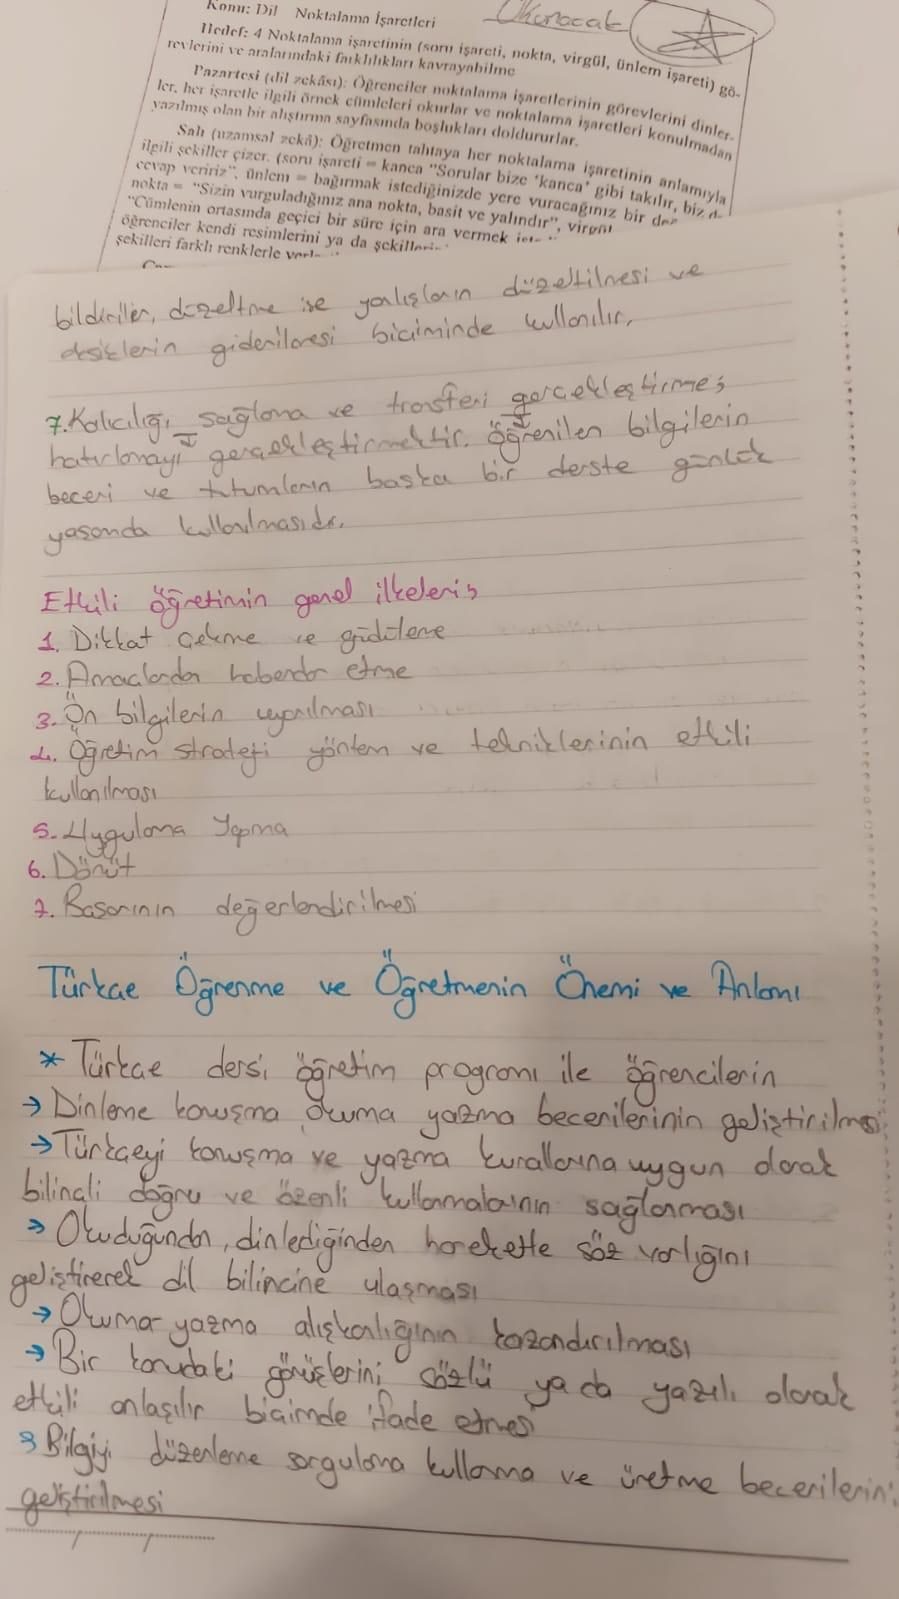 Konu: Dil Noktalama İşaretleri
Okunacak
Hedef: 4 Noktalama işaretinin (soru işareti, nokta, virgül, ünlem işareti) gö-
revlerini ve aralarındaki farklılıkları kavrayabilme
Pazartesi (dil zekâsı): Öğrenciler noktalama işaretlerinin görevlerini dinler-
ler, her işaretle ilgili örnek cümleleri okurlar ve noktalama işaretleri konulmadan
yazılmış olan bir alıştırma sayfasında boşlukları doldururlar.
Salı (uzamsal zekâ): Öğretmen tahtaya her noktalama işaretinin anlamıyla
ilgili şekiller çizer. (soru işareti = kanca "Sorular bize 'kanca' gibi takılır, biz
cevap veririz", ünlem = bağırmak istediğinizde yere vuracağınız bir
nokta = "Sizin vurguladığınız ana nokta, basit ve yalındır", virgül
"Cümlenin ortasında geçici bir süre için ara vermek
öğrenciler kendi resimlerini ya da
şekilleri farklı renklerle
bildirilir, düzeltme ise yanlışların düzeltilmesi ve
eksiklerin giderilmesi biçiminde kullanılır.
7. Kalıcılığı sağlama ve transferi gerçekleştirme;
hatırlamayı gerçekleştirmektir. Öğrenilen bilgilerin
beceri ve tutumların başka bir derste günlük
yaşamda kullanılmasıdır.
Etkili öğretimin genel ilkeleri;
1. Dikkat çekme ve güdüleme
2. Amaçlardan haberdar etme
3. Ön bilgilerin uyarılması
4. Öğretim strateji yöntem ve tekniklerinin etkili
kullanılması
5. Uygulama Yapma
6. Dönüt
7. Başarının değerlendirilmesi
Türkçe Öğrenme ve Öğretmenin Önemi ve Anlamı
* Türkçe dersi öğretim programı ile öğrencilerin
→ Dinleme konuşma okuma yazma becerilerinin geliştirilmesi
→ Türkçeyi konuşma ve yazma kurallarına uygun olarak
bilinçli doğru ve özenli kullanmalarının sağlanması
→ Okuduğundan, dinlediğinden hareketle söz varlığını
geliştirerek dil bilincine ulaşması
→ Okuma-yazma alışkanlığının kazandırılması
→ Bir konudaki görüşlerini sözlü ya da yazılı olarak
etkili anlaşılır biçimde ifade etmesi
→ Bilgiyi düzenleme sorgulama kullanma ve üretme becerilerini
geliştirilmesi